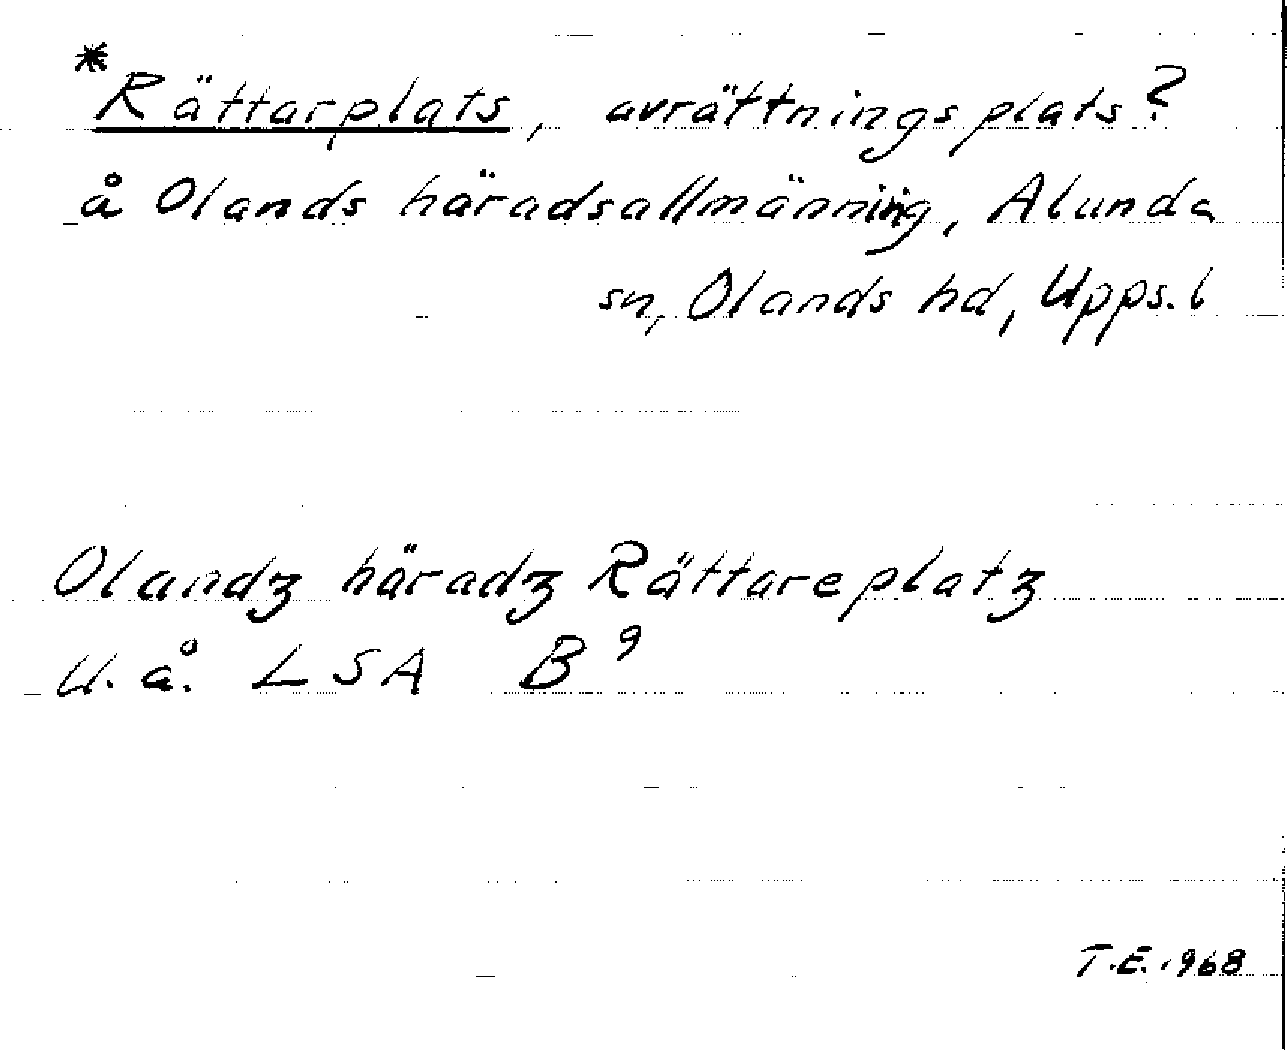 *Rättarplats, avrättningsplats?
å Olands häradsallmänning, Alunda
sn, Olands hd, Upps. l
Olandz häradz Rättareplatz
U. å. LSA B⁹
T.E. 1968